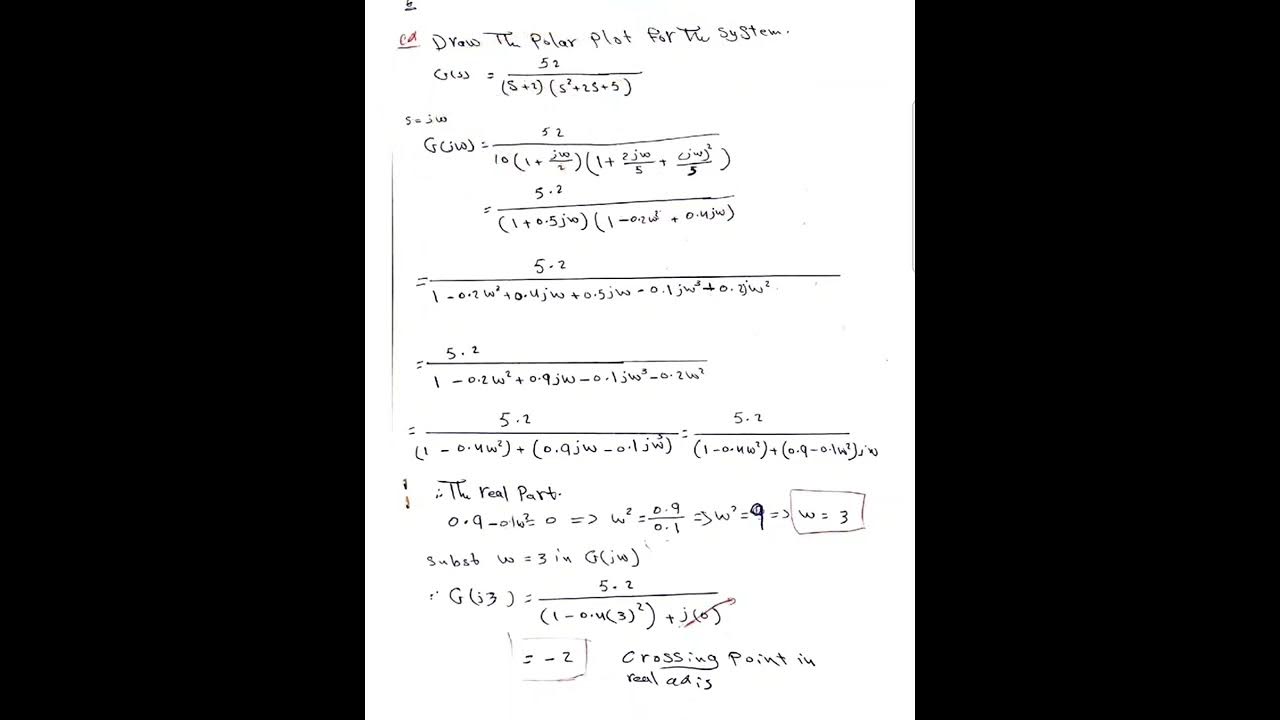 ed Draw The Polar Plot for The system.
G(s) = 52 / (S+2)(S²+2S+5)
s = jω
G(jω) = 52 / 10(1 + jω/2)(1 + 2jω/5 + (jω)²/5)
= 5.2 / (1+0.5jω)(1-0.2ω² + 0.4jω)
= 5.2 / 1 - 0.2ω² + 0.4jω + 0.5jω - 0.1jω³ + 0.2jω²
= 5.2 / 1 - 0.2ω² + 0.9jω - 0.1jω³ - 0.2ω²
= 5.2 / (1 - 0.4ω²) + (0.9jω - 0.1jω³) = 5.2 / (1-0.4ω²)+(0.9-0.1ω²)jω
∴ The real Part.
0.9-0.1ω²= 0 => ω² = 0.9/0.1 => ω² = 9 => ω = 3
subst ω = 3 in G(jω)
∵ G(j3) = 5.2 / (1-0.4(3)²) + j(0)
= -2 Crossing Point in
real adis